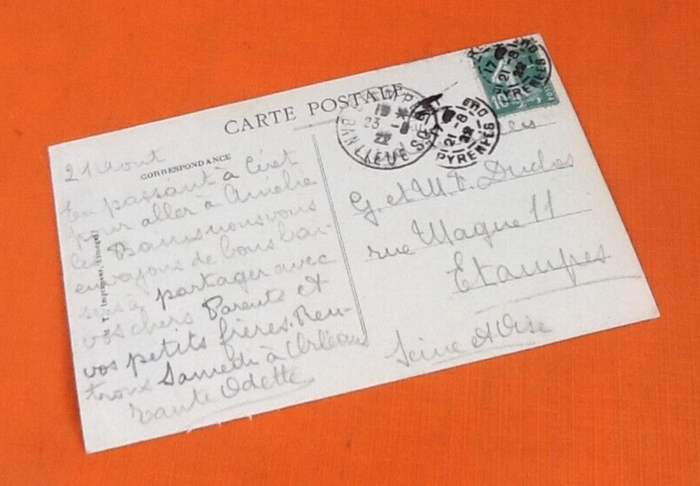 CARTE POSTALE
CORRESPONDANCE
21 Aout
En passant à Céret
pour aller à Amélie
les Bains nous vous
envoyons de bons bai-
sers à partager avec
vos chers Parents et
vos petits frères. Ren-
trons Samedi à Orléans
Tante Odette
G. et M. Duclos
rue Magne 11
Etampes
Seine et Oise
17
21-8
22
PYRENEES
21-8
22
PYRENEES
23
22
BANLIEUE
10